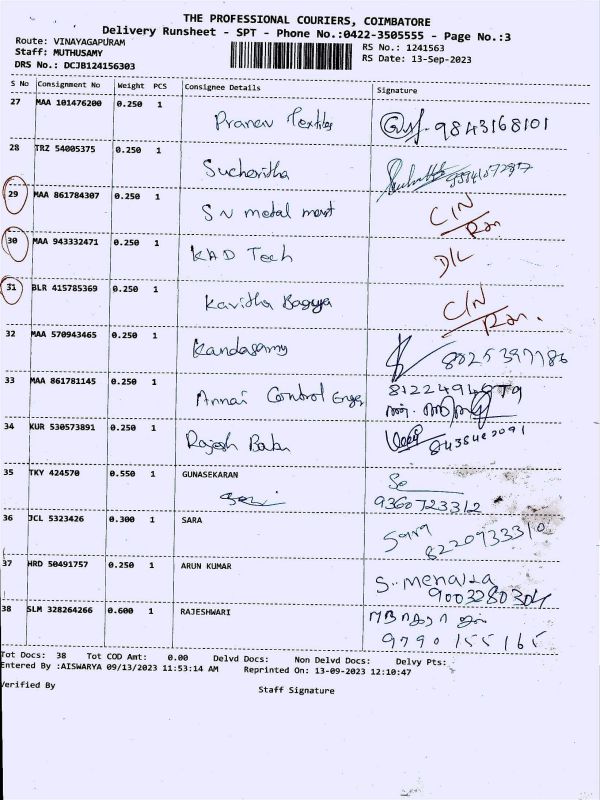 THE PROFESSIONAL COURIERS, COIMBATORE
Delivery Runsheet - SPT - Phone No.:0422-3505555 - Page No.:3
Route: VINAYAGAPURAM
Staff: MUTHUSAMY
DRS No.: DCJB124156303
RS No.: 1241563
RS Date: 13-Sep-2023
S No Consignment No Weight PCS Consignee Details Signature
27 MAA 101476200 0.250 1 Pranav Textiles 9843168101
28 TRZ 54005375 0.250 1 Sucharitha
29 MAA 861784307 0.250 1 SN metal mart C/N
30 MAA 943332471 0.250 1 KAD Tech D/L
31 BLR 415785369 0.250 1 Kavitha Bagya C/N
32 MAA 570943465 0.250 1 Kandasamy 8825397786
33 MAA 861781145 0.250 1 Annai Control Engg
34 KUR 530573891 0.250 1 Rajesh Babu
35 TKY 424570 0.550 1 GUNASEKARAN
9360723312
36 JCL 5323426 0.300 1 SARA Sara
8220933310
37 HRD 50491757 0.250 1 ARUN KUMAR
9003280304
38 SLM 328264266 0.600 1 RAJESHWARI
9790155165
Tot Docs: 38 Tot COD Amt: 0.00 Delvd Docs: Non Delvd Docs: Delvy Pts:
Entered By :AISWARYA 09/13/2023 11:53:14 AM Reprinted On: 13-09-2023 12:10:47
Verified By Staff Signature